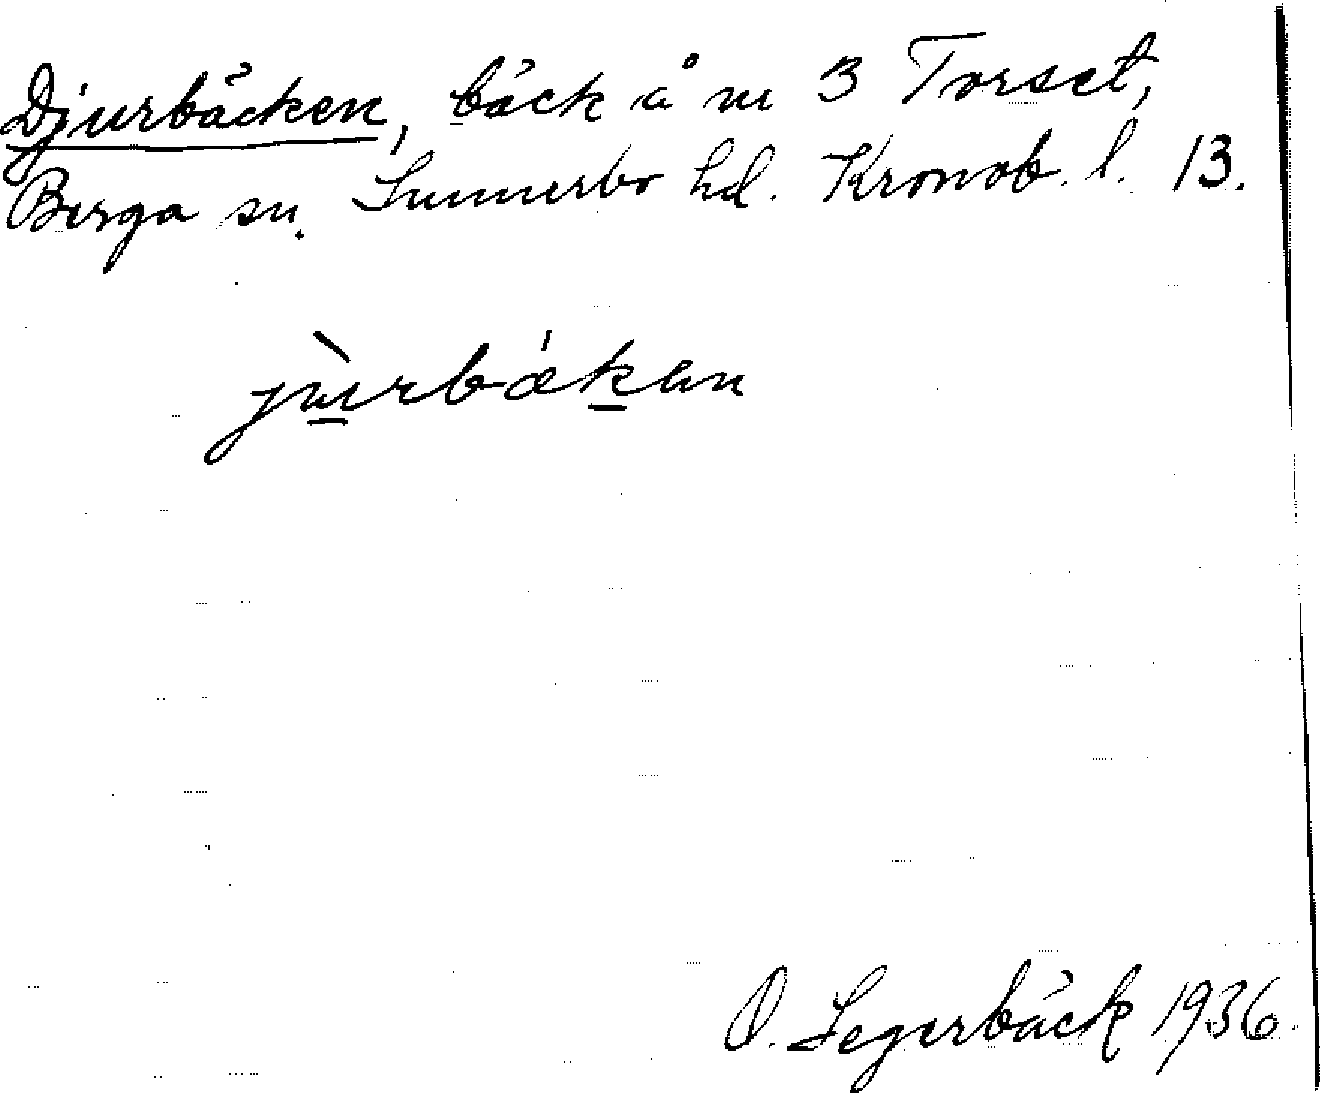 Djurbäcken, bäck å nr 3 Torset,
Berga sn. Sunnerbo hd. Kronob. l. 13.
jùrbǽkan
O. Segerbäck 1936.